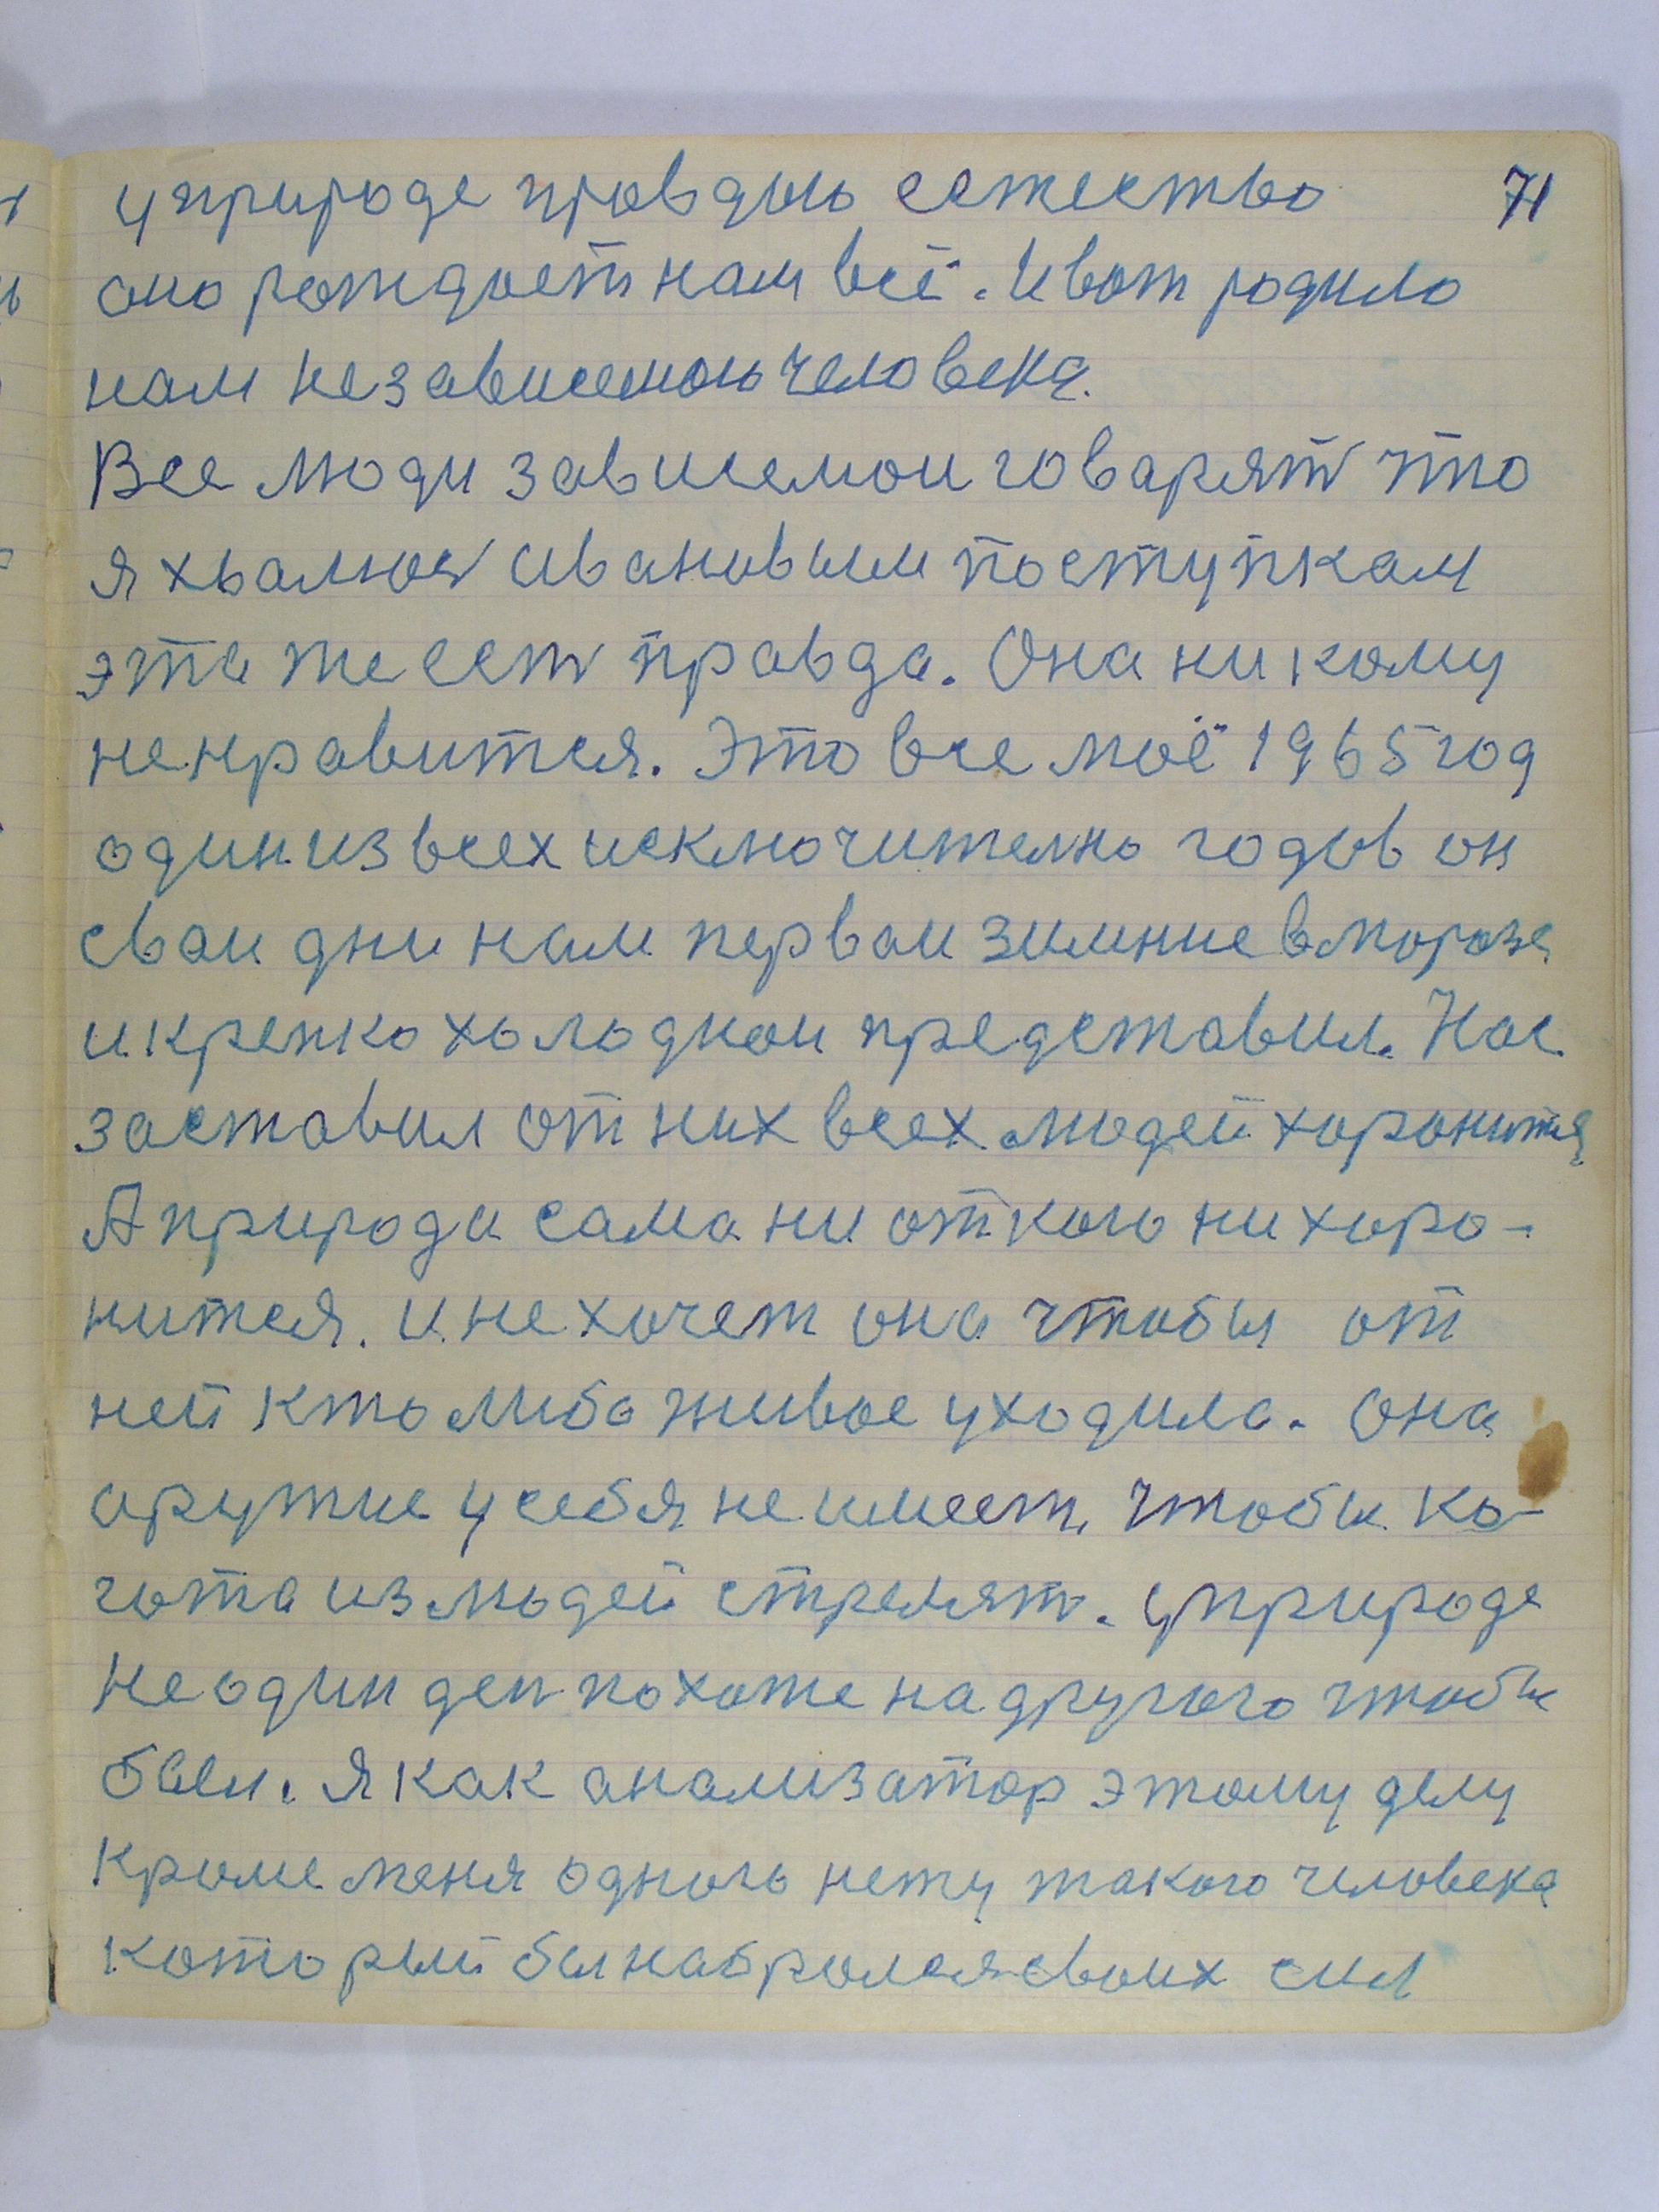 71
у природе провдою естество
оно рождает нам всё. И вот родило
нам независемою человека.
Все люди зависемои говарят что
я хвалюс ивановым поступкам
эта же ест правда. Она ни кому
не нравится. Это все моё 1965 год
один из всех исключително годов он
сваи дни нам перваи зимние в мороза
и крепко холоднои представил. Нас
заставил от них всех людей хоронится
А природа сама ни от кого ни хоро-
нится. и не хочет она чтобы от
ней кто либо живое уходила. Она
аружие у себя не имеет, чтобы ко-
гота из людей стрелят. у природе
не один ден похоже на другого чтобы
был. Я как анализатор этому делу
кроме меня одного нету такого человека
который бы набрался своих сил